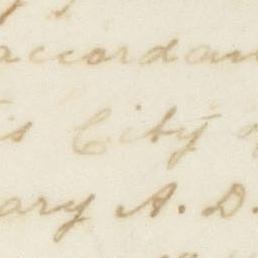 accordan
is City
ary A. D.